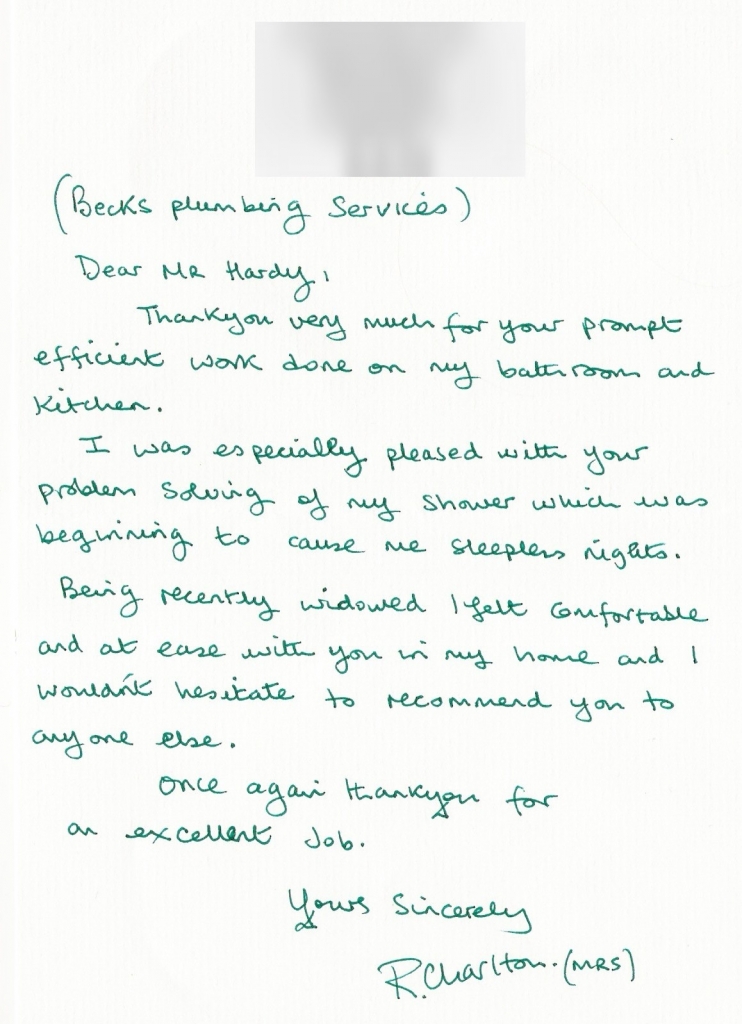 (Becks plumbing Services)
Dear Mr Hardy,
Thankyou very much for your prompt
efficient work done on my bathroom and
Kitchen.
I was especially pleased with your
problem solving of my shower which was
beginning to cause me sleepless nights.
Being recently widowed I felt comfortable
and at ease with you in my home and I
wouldn't hesitate to recommend you to
anyone else.
Once again thankyou for
an excellent Job.
Yours Sincerely
R. Charlton. (MRS)